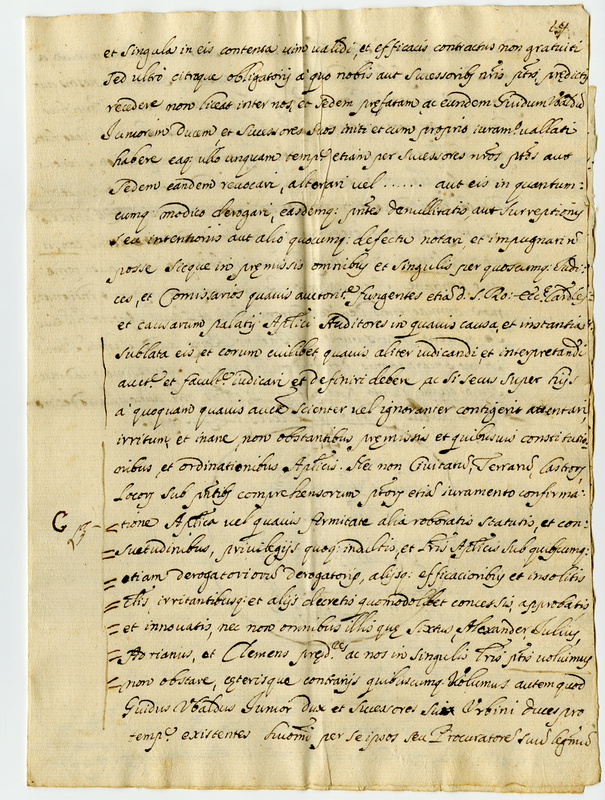 et singula in eis contenta vim validi, et efficacis contractus non gratuiti
sed ultro citroque obligatorij a quo nobis aut successoribus nris ptis predictis
recedere non liceat inter nos, et sedem prefatam ac eundem Guidum Ubaldū
Juniorem ducem et successores suos initi et cum proprio iuramto vallati
habere eaq: ullo unquam tempe etiam per successores nros ptos aut
sedem eandem revocari, alterari vel ...... aut eis in quantum=
cumq: modico derogari, easdemq: pntes de nullitatis aut surreptionis
seu intentionis aut alio quocumq: defectu notari et impugnari nō
posse sicque in premissis omnibus et singulis per quoscumq: Iudi=
ces, et Comissarios quavis auctorite fungentes etiā d. S. Ro: Ecce Cardles
et causarum palatij Aplici Auditores in quavis causa, et instantia
sublata eis, et eorum cuilibet quavis aliter iudicandi, et interpretandi
auctte et facultte iudicari et definiri debere ac si secus super hijs
a' quoquam quavis aucte scienter vel ignoranter contigerit attentari,
irritum, et inane non obstantibus premissis et quibusvis constitutio=
onibus, et ordinationibus Aplicis. Nec non Civitatū, Terrarū, Castrorū,
Locorū sub pntibus comprehensorum ptorū etiā iuramento confirma=
G 23 tione Aplica vel quavis firmitate aliā roboratis statutis, et con=
suetudinibus, privilegijs quoq: indultis, et lris Aplicis sub quibuscumq:
etiam derogatoriorū derogatorijs, alijsq: efficacioribus et insolitis
clis, irritantibusq: et alijs decretis quomodolibet concessis, approbatis
et innovatis, nec non omnibus illis que Sixtus Alexander Iulius,
Adrianus, et Clemens predres ac nos in singulis lris ptis volumus
non obstare, ceterisque contrarijs quibuscumq: Volumus autem quod
Guidus Ubaldus Junior dux et successores sui Urbini duces pro
tempe existentes per se ipsos seu Procuratores suū legmū